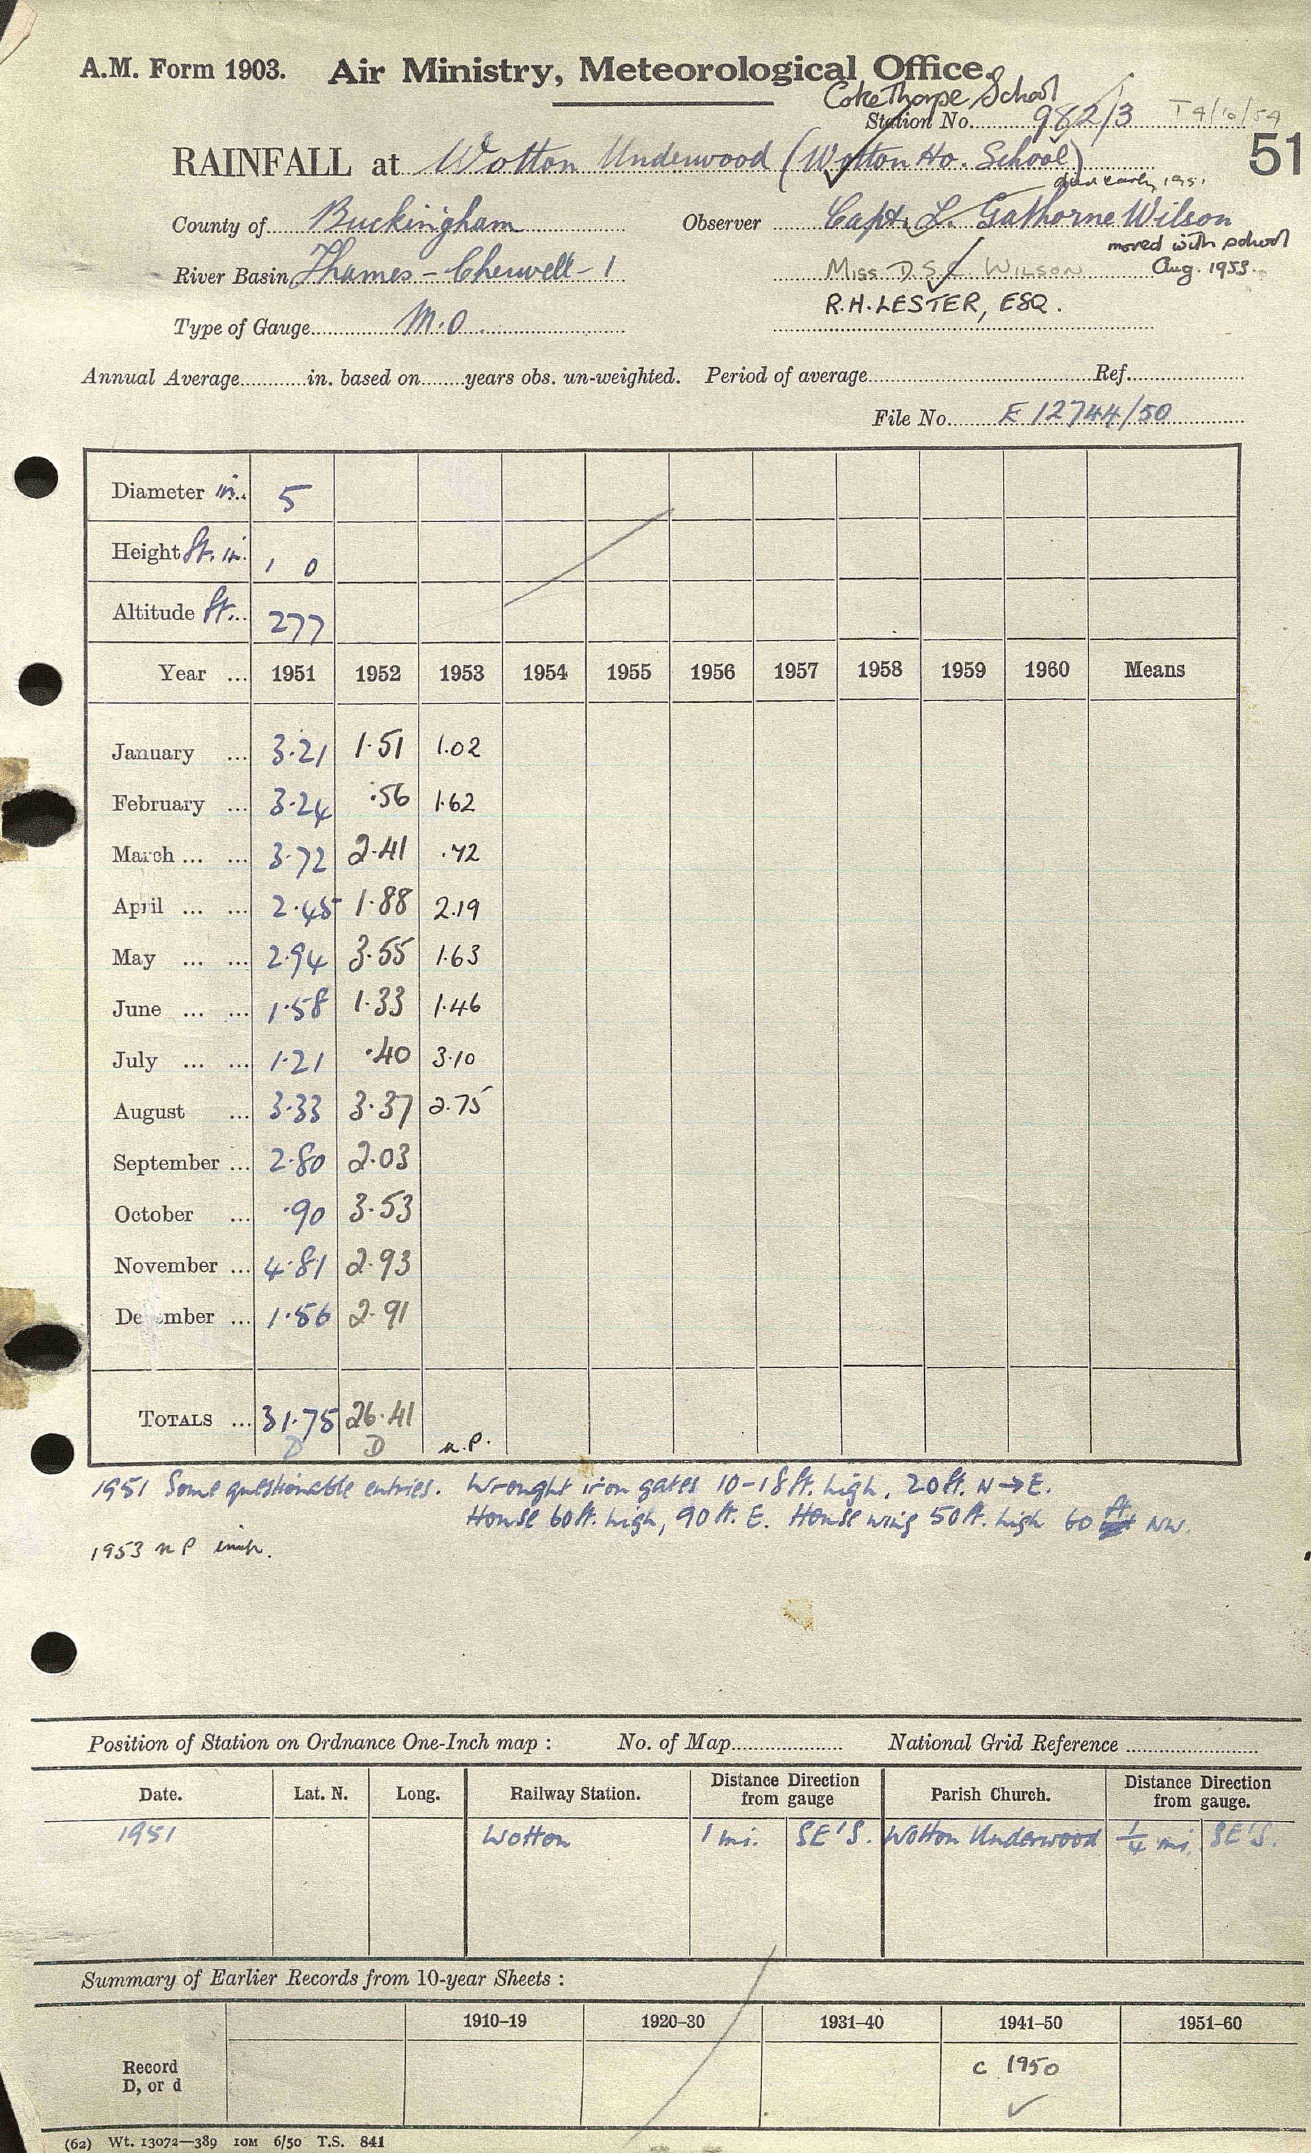 A.M. Form 1903. Air Ministry, Meteorological Office.
CokeThorpe School
Station No. 982/3 T 9/10/54
RAINFALL at Wotton Underwood (Wotton Ho. School) 51
died early 1951
County of Buckingham Observer Capt. L. Gathorne Wilson
moved with school
River Basin Thames - Cherwell - 1 MISS D.S.C. WILSON Aug. 1953.
R.H. LESTER, ESQ.
Type of Gauge M.O
Annual Average in. based on years obs. un-weighted. Period of average Ref.
File No. E 12744/50
Diameter in. 5
Height ft. in. 1 0
Altitude ft. 277
Year ... 1951 1952 1953 1954 1955 1956 1957 1958 1959 1960 Means
January ... 3.21 1.51 1.02
February ... 3.24 .56 1.62
March ... ... 3.72 2.41 .72
April ... ... 2.45 1.88 2.19
May ... ... 2.94 3.55 1.63
June ... ... 1.58 1.33 1.46
July ... ... 1.21 .40 3.10
August ... 3.33 3.37 2.75
September ... 2.80 2.03
October ... .90 3.53
November ... 4.81 2.93
December ... 1.56 2.91
TOTALS ... 31.75 26.41
D D n.P.
1951 Some questionable entries. Wrought iron gates 10-18ft. high, 20ft. N→E.
House 60ft. high, 90ft. E. House wing 50ft. high 60 ft NW.
1953 n P
Position of Station on Ordnance One-Inch map : No. of Map National Grid Reference
Date. Lat. N. Long. Railway Station. Distance Direction from gauge Parish Church. Distance Direction from gauge.
1951 Wotton 1 mi. SE'S. Wotton Underwood 1/4 mi. SE'S.
Summary of Earlier Records from 10-year Sheets :
1910–19 1920–30 1931–40 1941–50 1951–60
Record D, or d c 1950
(62) Wt. 13072—389 10M 6/50 T.S. 841